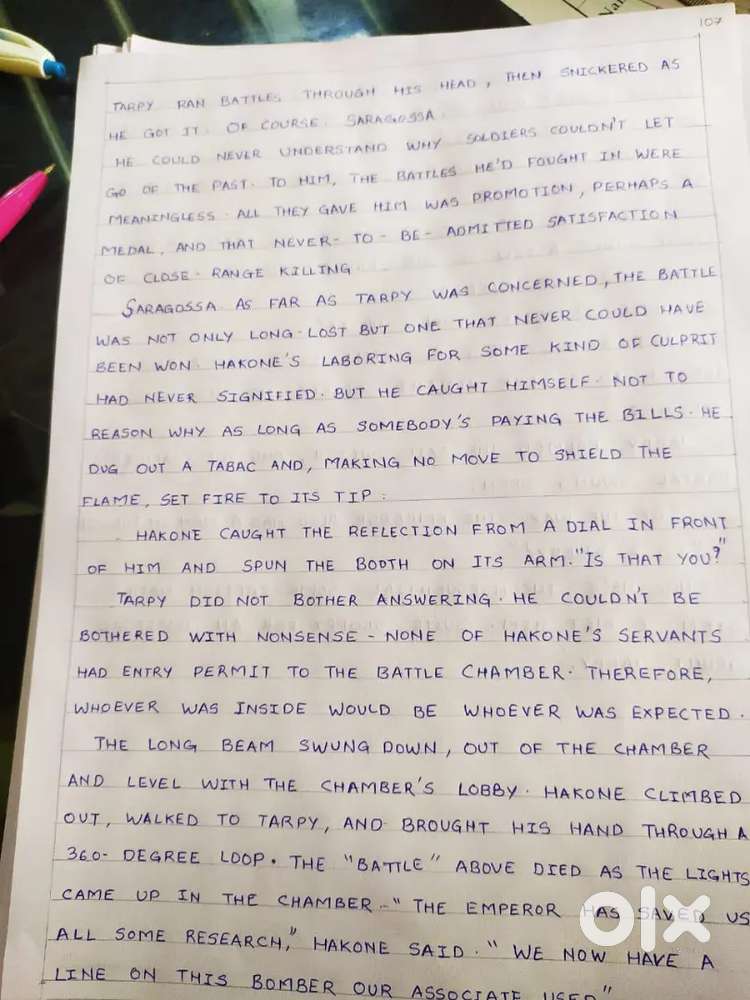 107
TARPY RAN BATTLES THROUGH HIS HEAD, THEN SNICKERED AS
HE GOT IT. OF COURSE. SARAGOSSA.
HE COULD NEVER UNDERSTAND WHY SOLDIERS COULDN'T LET
GO OF THE PAST. TO HIM, THE BATTLES HE'D FOUGHT IN WERE
MEANINGLESS. ALL THEY GAVE HIM WAS PROMOTION, PERHAPS A
MEDAL, AND THAT NEVER-TO-BE-ADMITTED SATISFACTION
OF CLOSE-RANGE KILLING
SARAGOSSA AS FAR AS TARPY WAS CONCERNED, THE BATTLE
WAS NOT ONLY LONG-LOST BUT ONE THAT NEVER COULD HAVE
BEEN WON. HAKONE'S LABORING FOR SOME KIND OF CULPRIT
HAD NEVER SIGNIFIED. BUT HE CAUGHT HIMSELF. NOT TO
REASON WHY AS LONG AS SOMEBODY'S PAYING THE BILLS. HE
DUG OUT A TABAC AND, MAKING NO MOVE TO SHIELD THE
FLAME, SET FIRE TO ITS TIP.
HAKONE CAUGHT THE REFLECTION FROM A DIAL IN FRONT
OF HIM AND SPUN THE BOOTH ON ITS ARM. "IS THAT YOU?"
TARPY DID NOT BOTHER ANSWERING. HE COULDN'T BE
BOTHERED WITH NONSENSE - NONE OF HAKONE'S SERVANTS
HAD ENTRY PERMIT TO THE BATTLE CHAMBER. THEREFORE,
WHOEVER WAS INSIDE WOULD BE WHOEVER WAS EXPECTED.
THE LONG BEAM SWUNG DOWN, OUT OF THE CHAMBER
AND LEVEL WITH THE CHAMBER'S LOBBY. HAKONE CLIMBED
OUT, WALKED TO TARPY, AND BROUGHT HIS HAND THROUGH A
360-DEGREE LOOP. THE "BATTLE" ABOVE DIED AS THE LIGHTS
CAME UP IN THE CHAMBER. "THE EMPEROR HAS SAVED US
ALL SOME RESEARCH," HAKONE SAID. "WE NOW HAVE A
LINE ON THIS BOMBER OUR ASSOCIATE USED"
olx